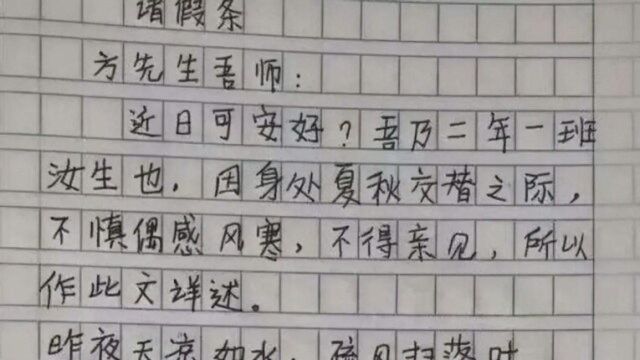 请假条
方先生吾师：
近日可安好？吾乃二年一班
汝生也，因身处夏秋交替之际，
不慎偶感风寒，不得亲见，所以
作此文详述。
昨夜天凉如水，